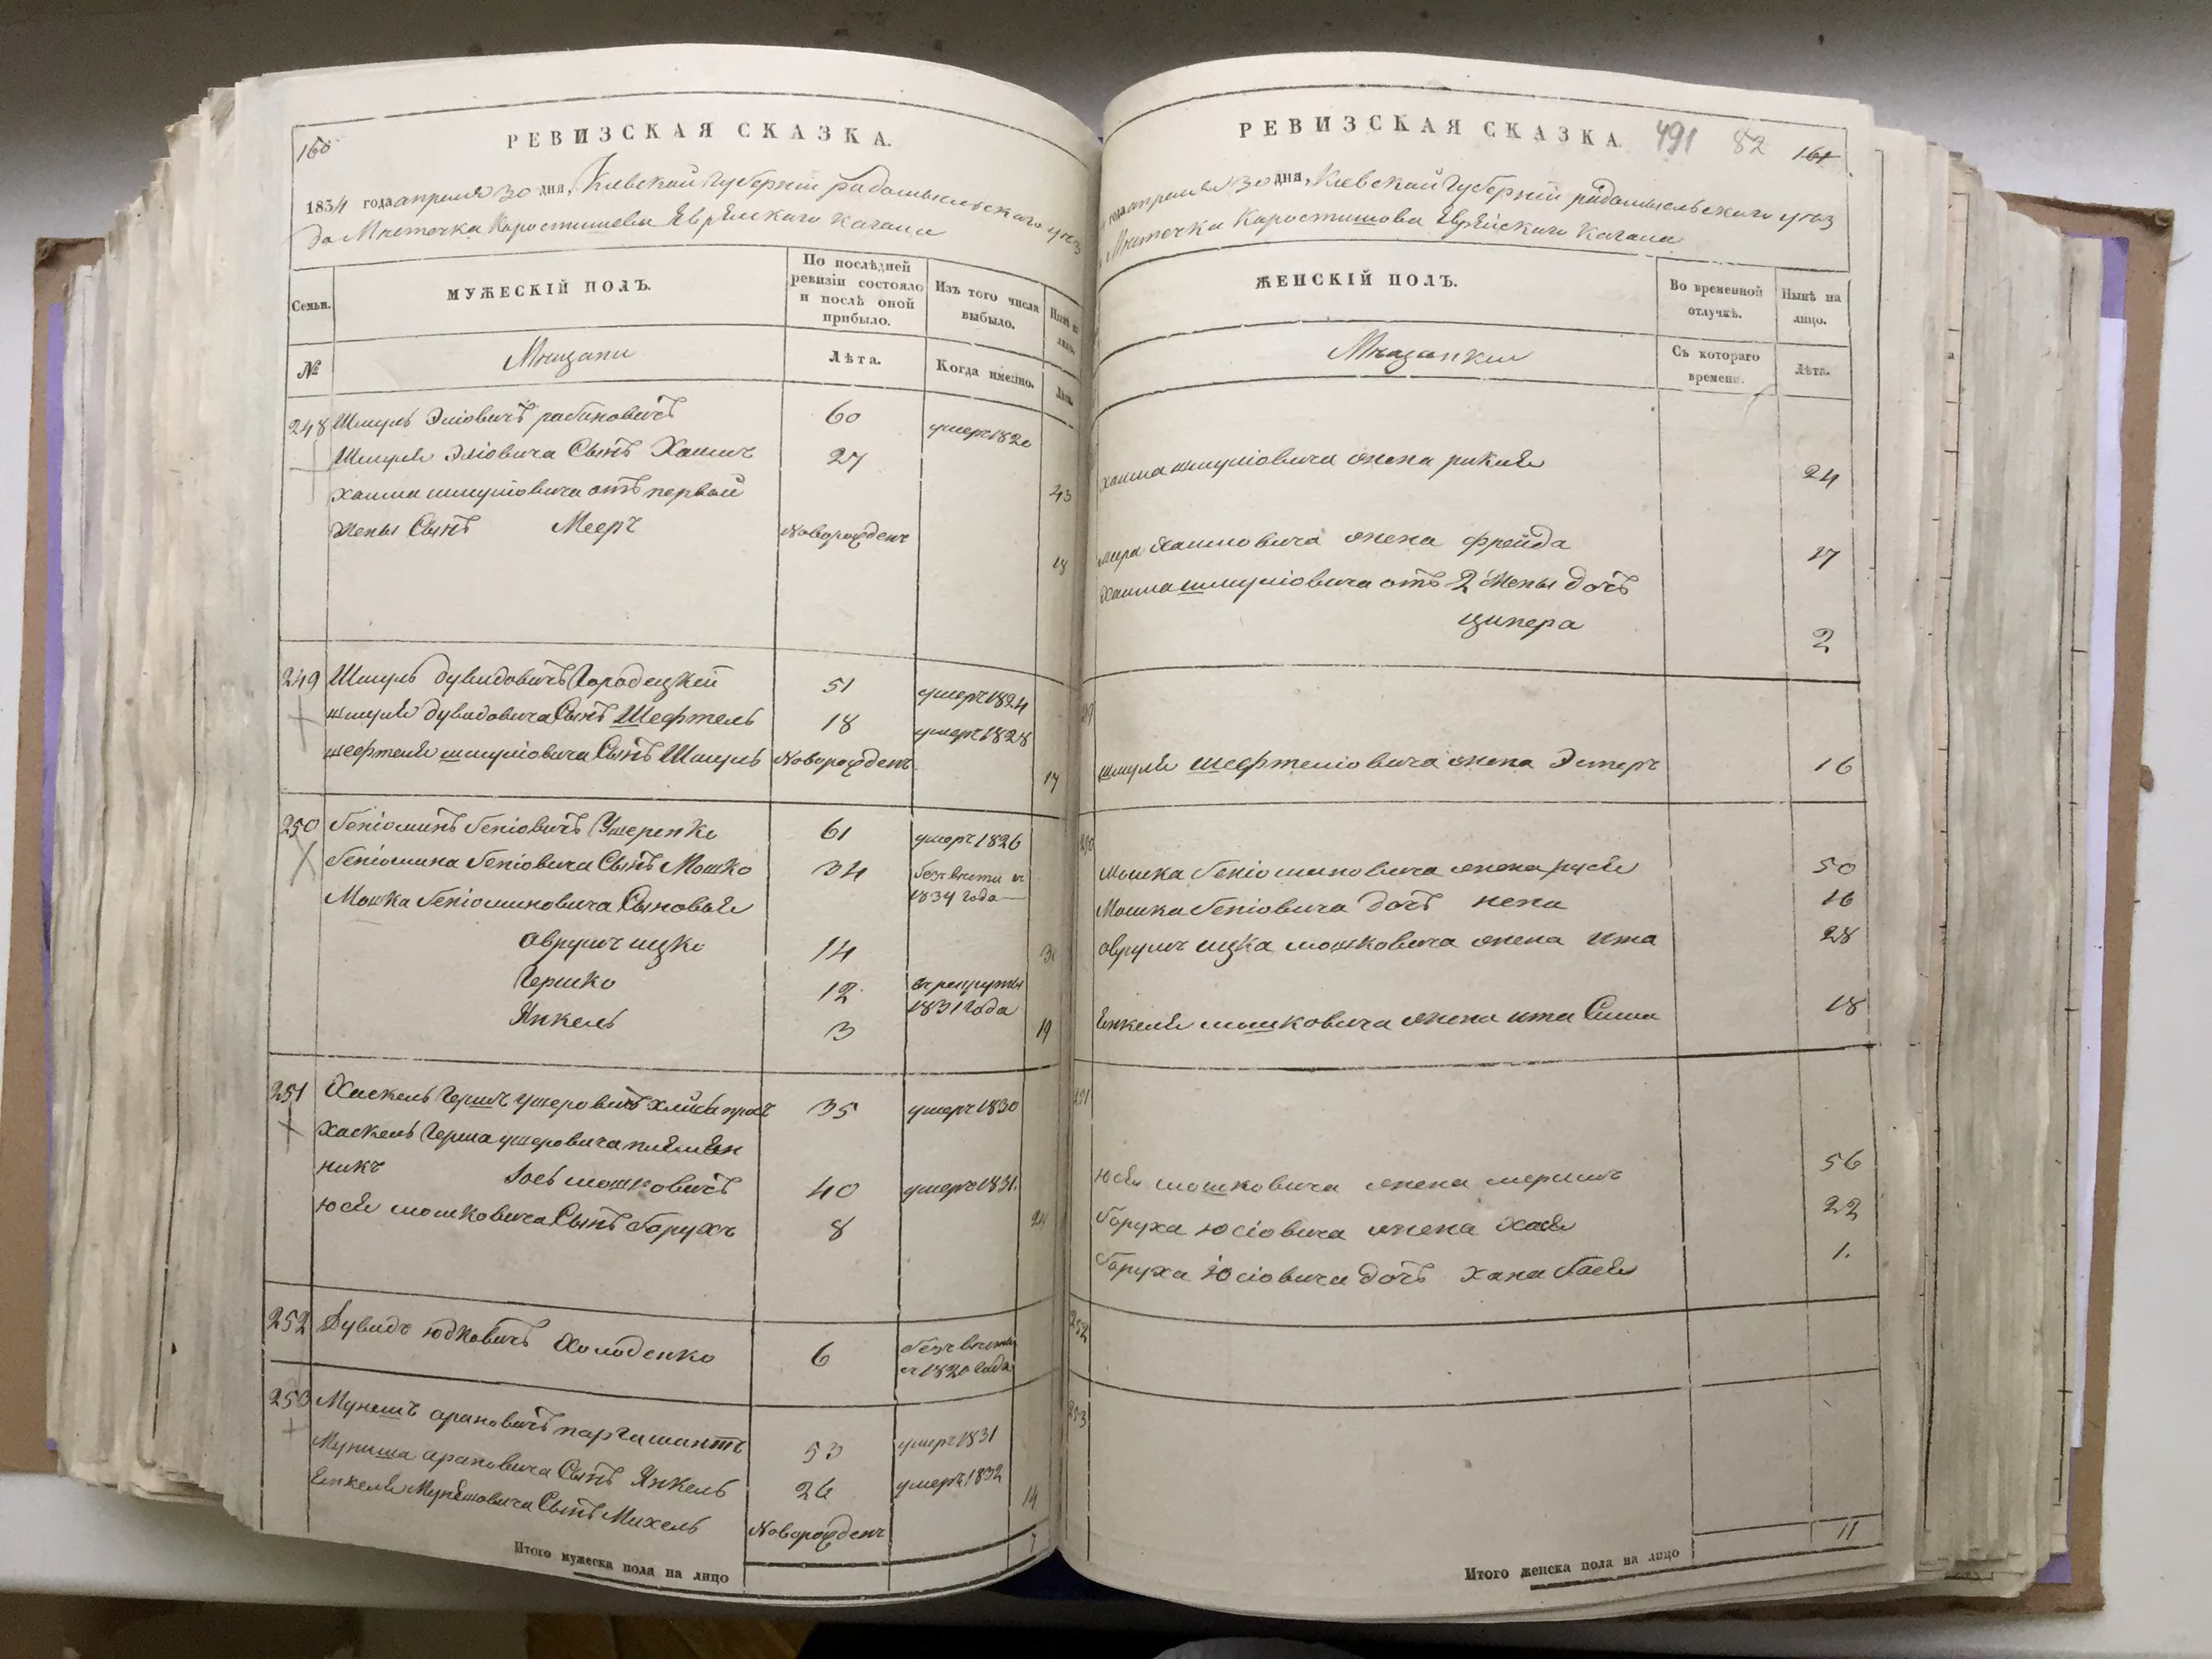 160
РЕВИЗСКАЯ СКАЗКА.
1834 года апреля 30 дня, Киевской Губернiи радомысльского уез
да Местечка Коростишева Еврейского Кагала
Семьи.
МУЖЕСКIЙ ПОЛЪ.
По послѣдней ревизiи состояло и послѣ оной прибыло.
Изъ того числа выбыло.
Нынѣ на лицо.
№
Мещане
Лѣта.
Когда именно.
Лѣта.
248 Шмуль Элiовичъ рабиновичъ 60 умеръ 1820
Шмуля Элiовича Сынъ Хаимъ 27 43
хаима шмулiовича отъ первой
жены Сынъ Мееръ Новорожденъ 18
249 Шмуль дувидовичъ Городецкiй 51 умеръ 1824
шмуля дувидовича Сынъ Шефтель 18 умеръ 1828
шефтеля шмулiовича Сынъ Шмуль Новорожденъ 17
250 бенiоминъ бенiовичъ Ушеренко 61 умеръ 1826
бенiомина бенiовича Сынъ Мошко 34 безъ вести съ
1834 года
Мошка бенiоминовича Сыновья
аврумъ ицко 14 30
Гершко 12 в рекруты
1831 года
Янкель 3 19
251 Хаскель Гершъ ушеровичъ 35 умеръ 1830
Хаскель Герша ушеровича племян
никъ Iось мошковичъ 40 умеръ 1831.
юся мошковича Сынъ борухъ 8 24
252 Дувидъ юдковичъ Холоденко 6 безъ вести
съ 1820 года
253 Мунешъ ароновичъ 53 умеръ 1831
Мунеша ароновича Сынъ Янкель 26 умеръ 1832
Янкеля Мунешовича Сынъ Михель Новорожденъ 14
Итого мужеска пола на лицо 7
РЕВИЗСКАЯ СКАЗКА
491 82 161
года апреля 30 дня, Киевской Губернiи радомысльского уез
Местечка Коростишова Еврейского Кагала
ЖЕНСКIЙ ПОЛЪ.
Во временной отлучкѣ.
Нынѣ на лицо.
Мещанки
Съ котораго времени.
Лѣта.
хаима шмулiовича жена рикля 24
меера Хаимовича жена фрейда 17
Хаима шмулiовича отъ 2 Жены дочь
ципера 2
249
шмуля шефтелiовича жена Эстеръ 16
250
Мошка бенiоминовича жена руся 50
Мошка бенiовича дочъ нена 16
аврумъ ицка мошковича жена ита 28
Янкеля мошковича жена ита Сима 18
251
юся мошковича жена 56
боруха юсiовича жена Хая 22
боруха юсiовича дочъ хана бася 1.
252
253
Итого женска пола на лицо 11